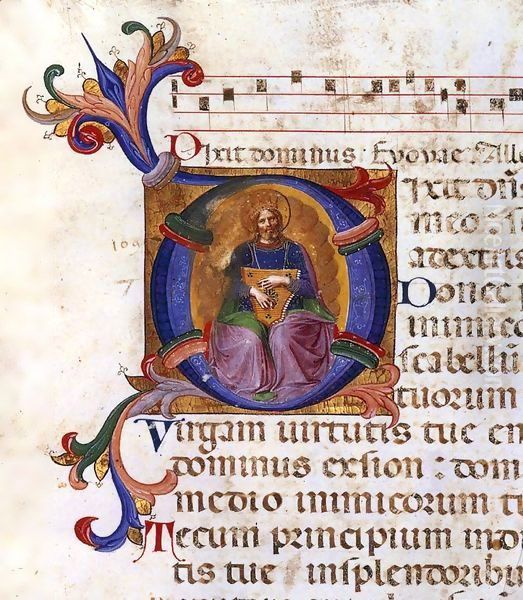 Dixit dominus · Evovae · Alle
ixit dn̄
meo : s
adextris
Donec
inimico
scabellū
tuorum
Virgam uirtutis tue
dominus exsion : dom
medio inimicorum
Tecum principium indi
tis tue insplendoribu